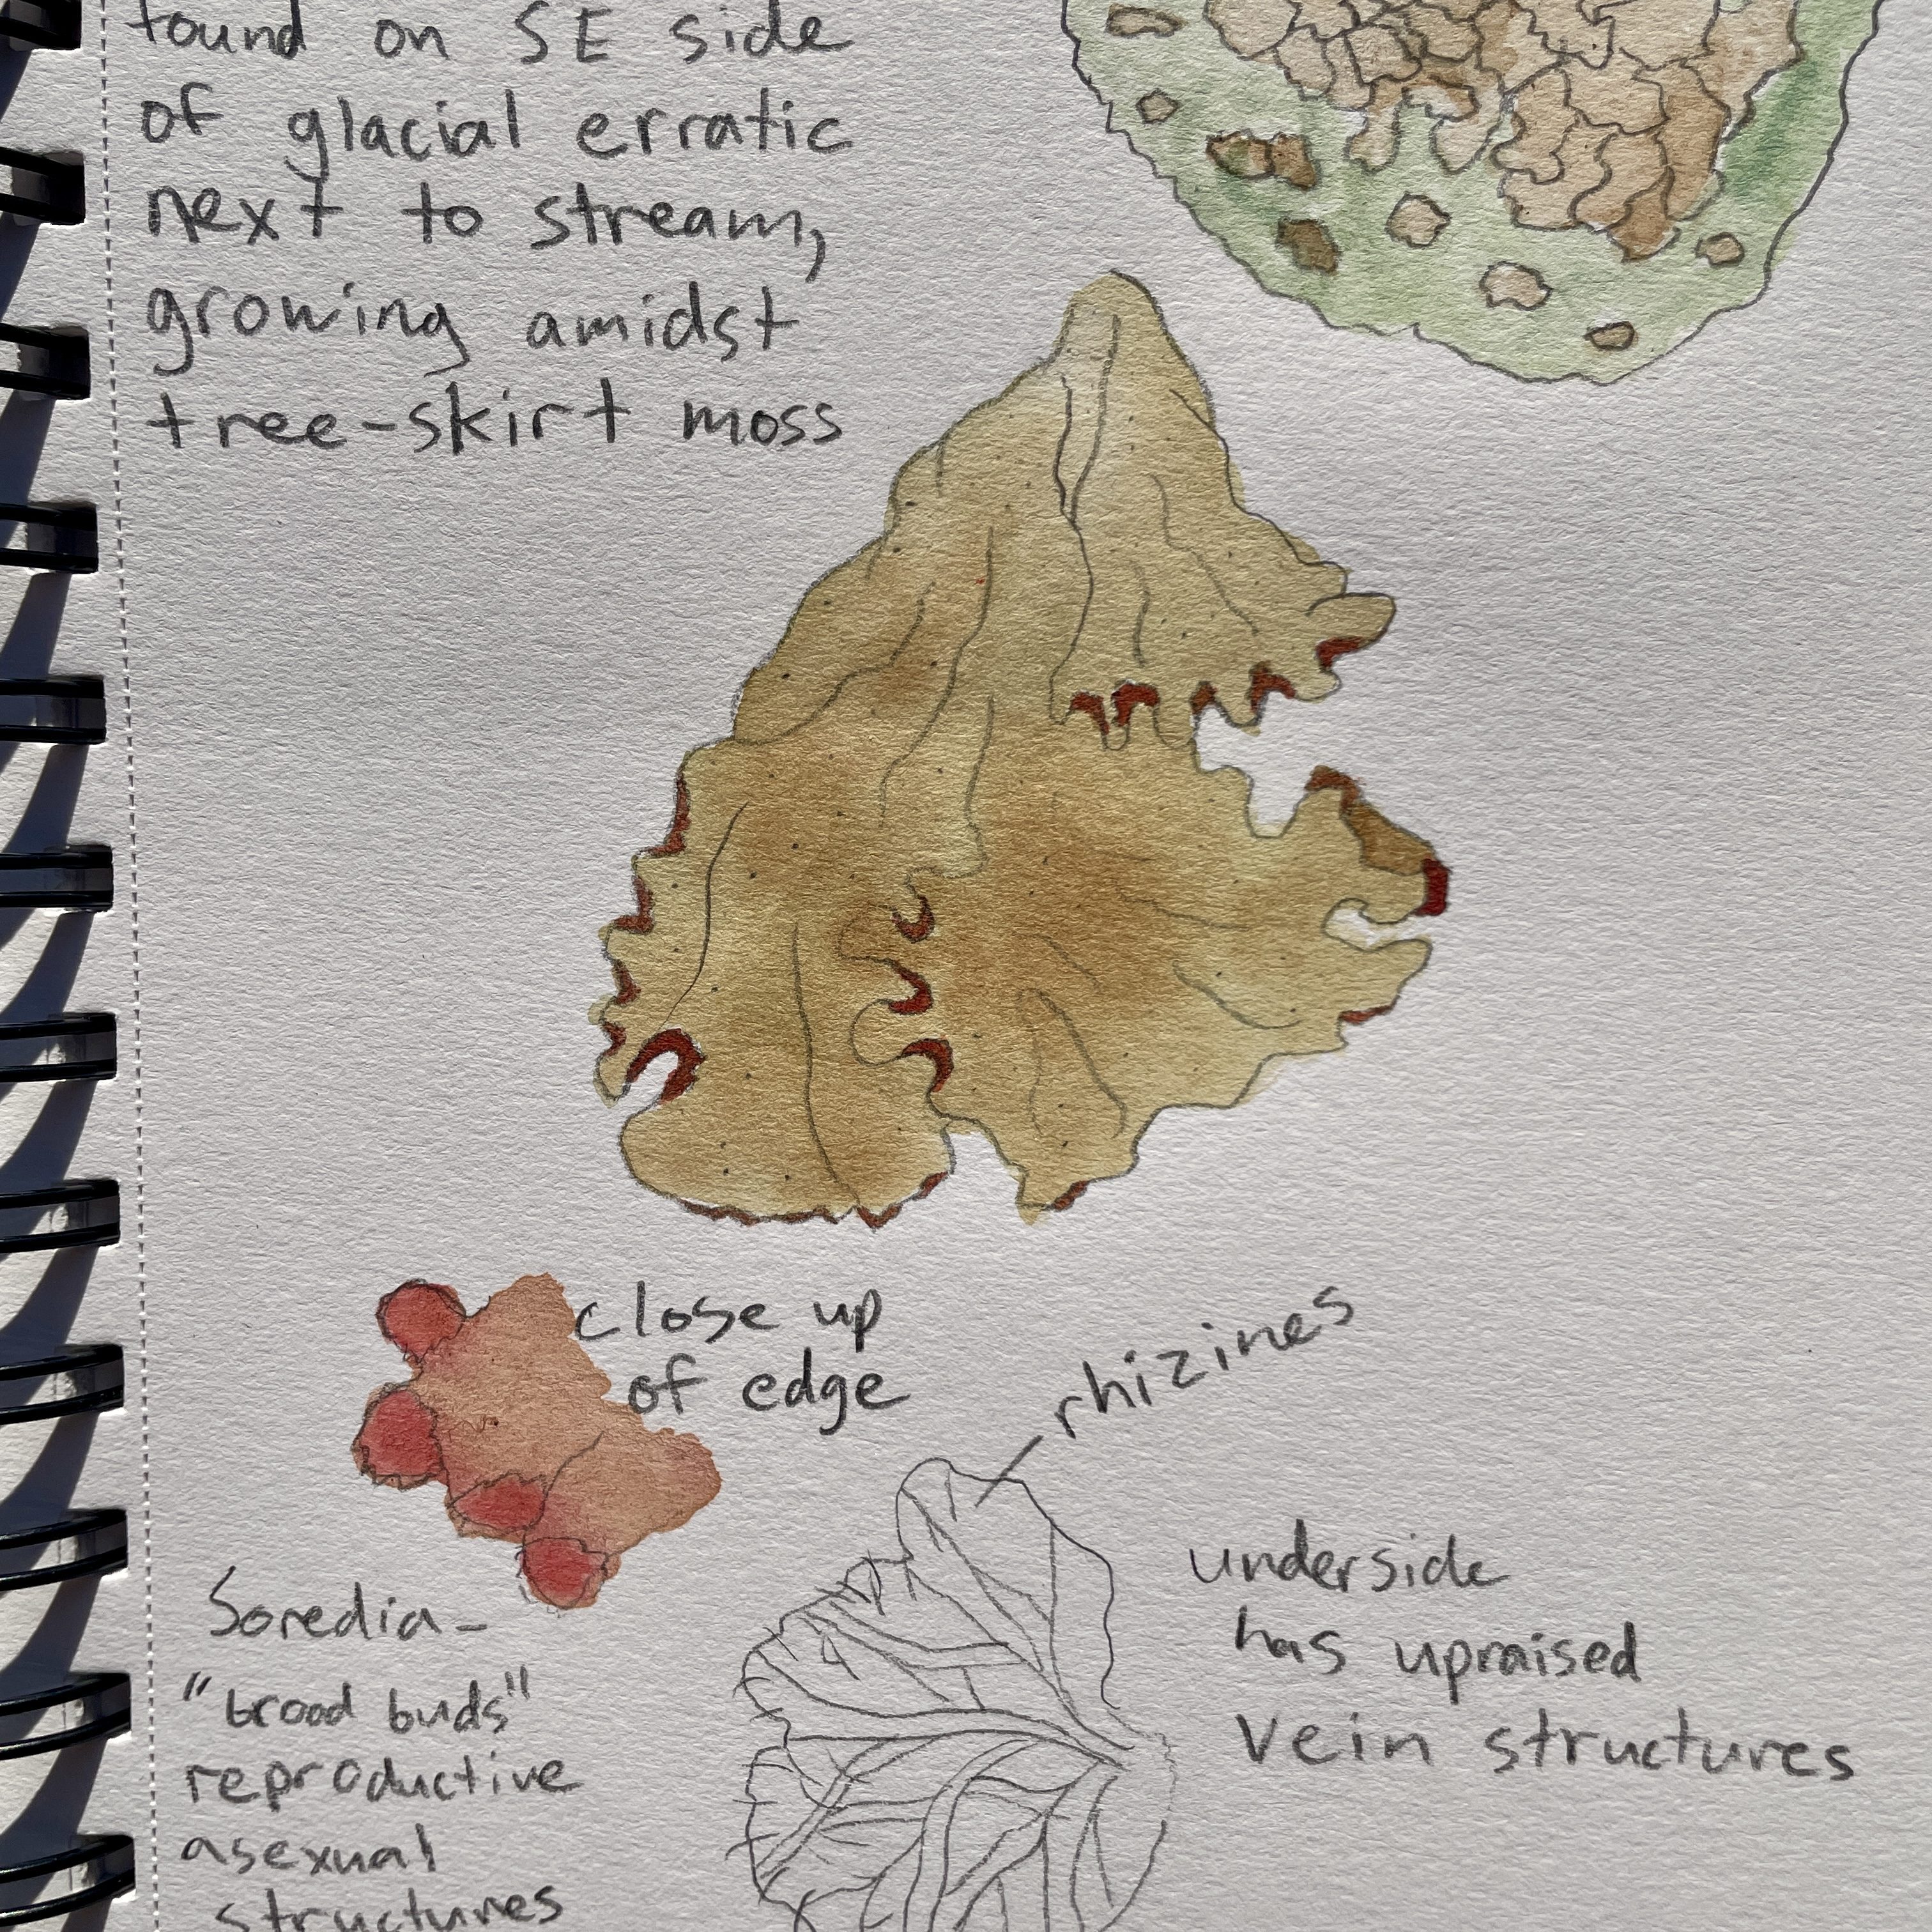 found on SE side
of glacial erratic
next to stream,
growing amidst
tree-skirt moss
close up
of edge
rhizines
underside
has upraised
vein structures
Soredia-
"brood buds"
reproductive
asexual
structures